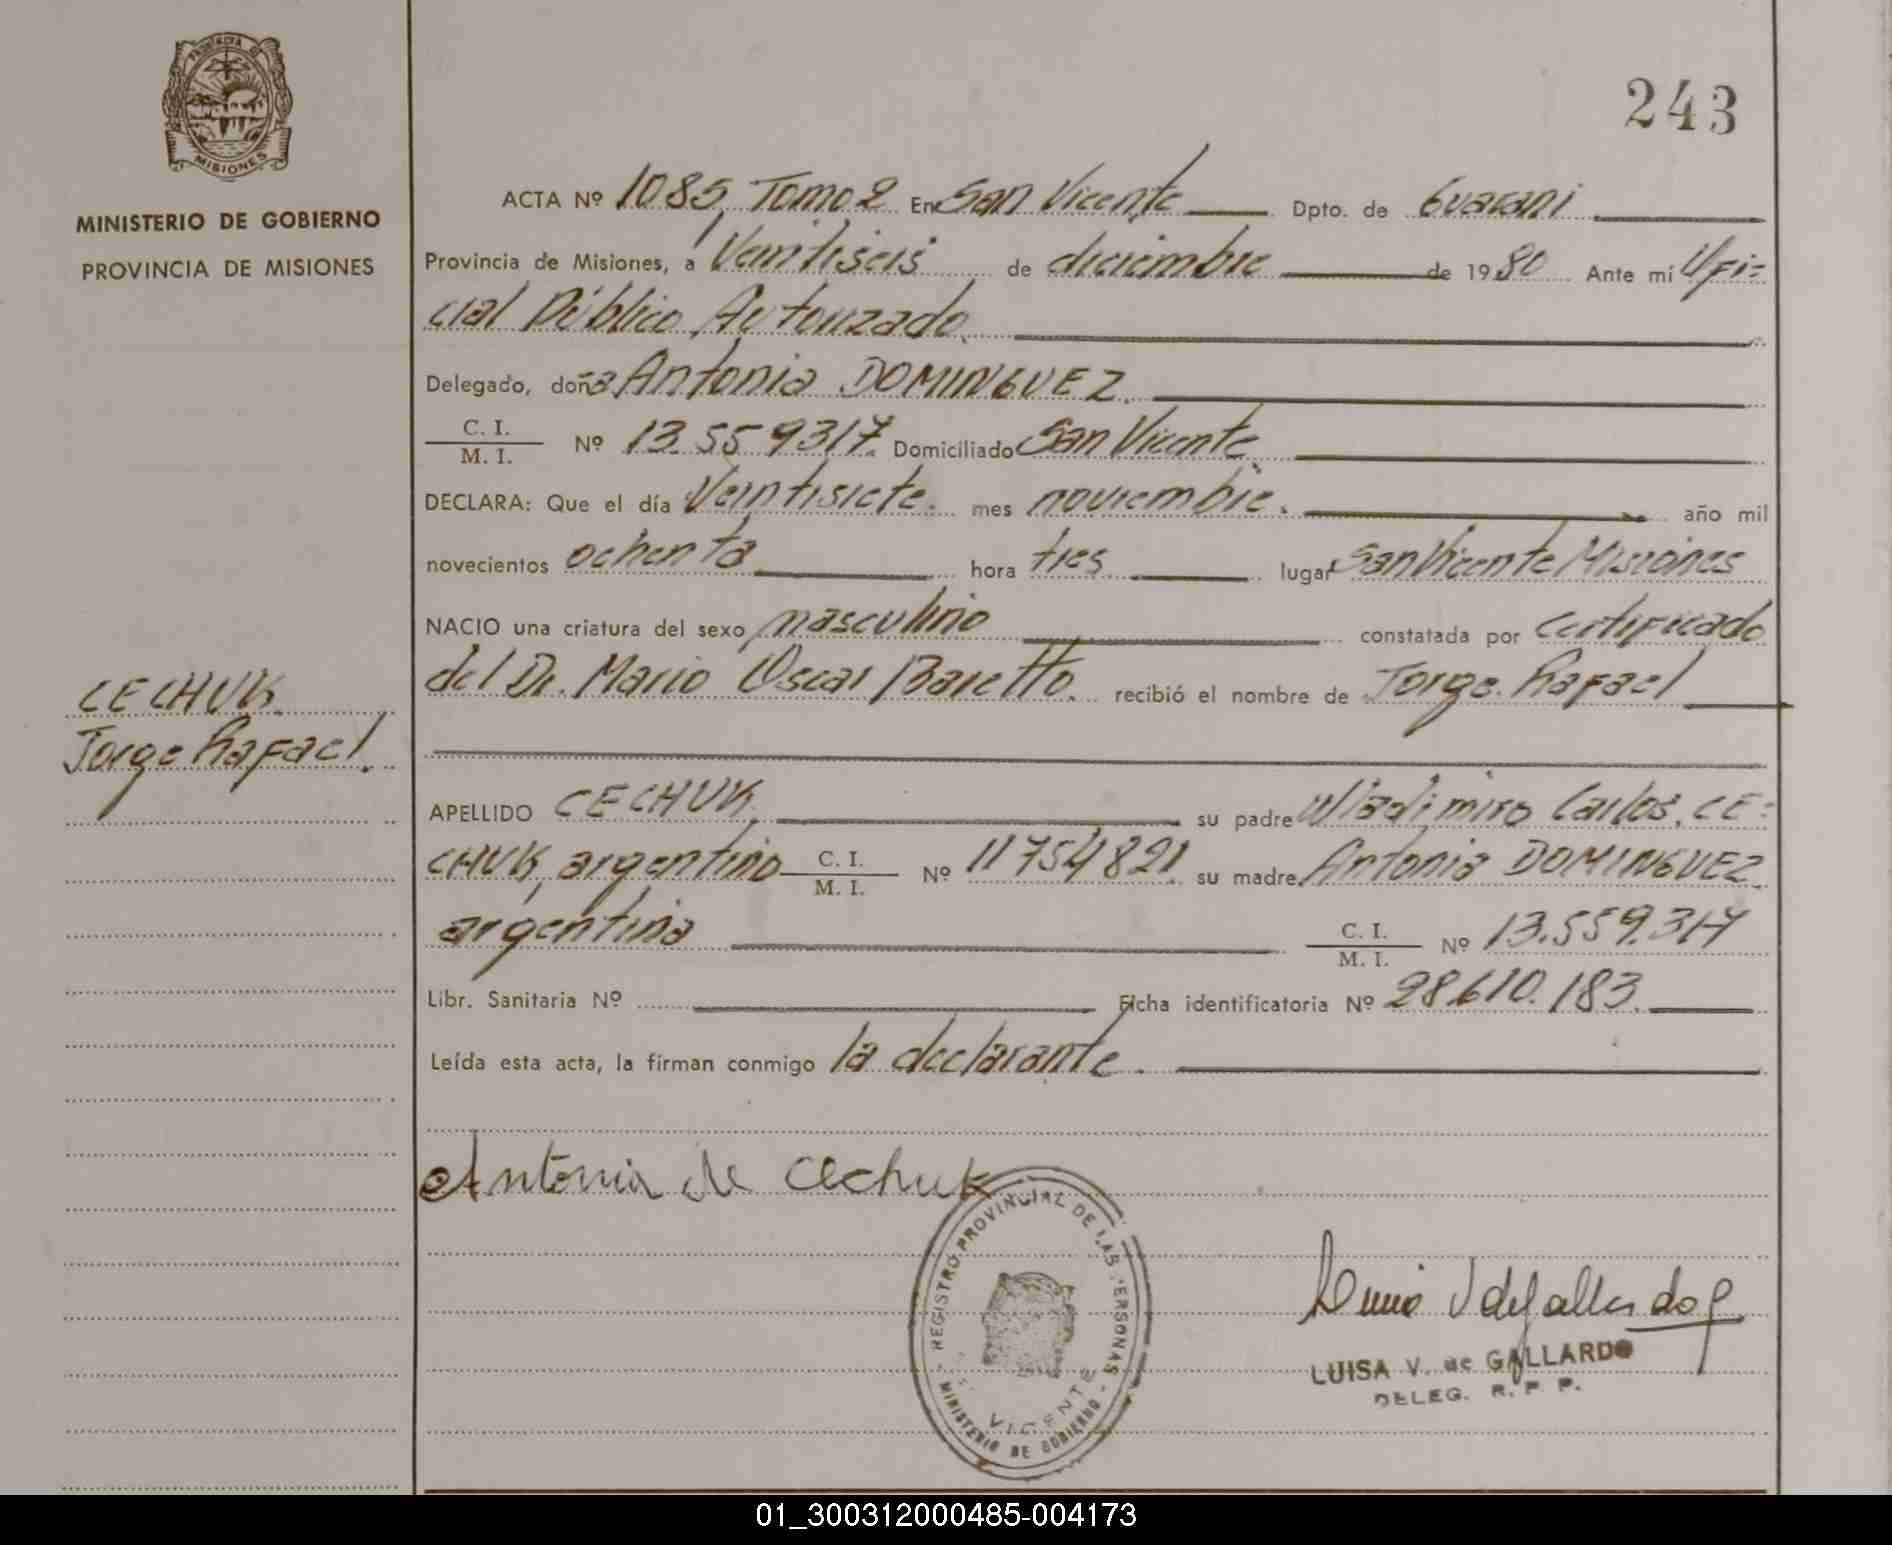 243
PROVINCIA DE
MISIONES
MINISTERIO DE GOBIERNO
PROVINCIA DE MISIONES
CECHUK
Jorge Rafael.
ACTA Nº 1085, Tomo 2 En San Vicente Dpto. de Guarani
Provincia de Misiones, a Veintiseis de diciembre de 1980 Ante mí Ofi=
cial Público Autorizado.
Delegado, doña Antonia DOMINGUEZ.
C. I.
M. I. Nº 13.559317. Domiciliado San Vicente.
DECLARA: Que el día Veintisiete. mes noviembre. año mil
novecientos ochenta hora tres lugar San Vicente Misiones
NACIO una criatura del sexo masculino constatada por certificado
del Dr. Mario Oscar Baretto. recibió el nombre de Jorge Rafael
APELLIDO CECHUK. su padre Wladimiro Carlos. CE=
CHUK, argentino C. I. M. I. Nº 11754821. su madre Antonia DOMINGUEZ.
argentina C. I. M. I. Nº 13.559.317
Libr. Sanitaria Nº Ficha identificatoria Nº 28.610.183.
Leída esta acta, la firman conmigo la declarante.
Antonia de Cechuk
REGISTRO PROVINCIAL DE LAS PERSONAS
VICENTE
MINISTERIO DE GOBIERNO
LUISA V. de GALLARDO
DELEG. R. P. P.
01_300312000485-004173